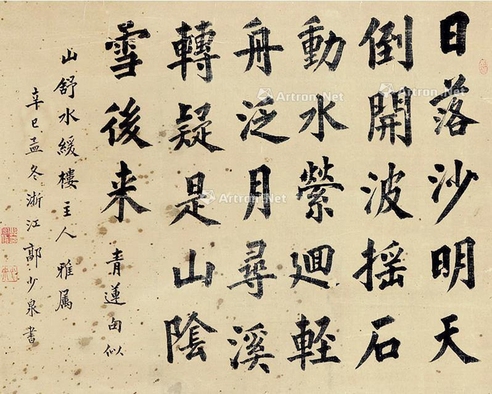 日落沙明天
倒開波搖石
動水縈迴軽
舟泛月尋溪
轉疑是山陰
雪後来
青蓮句似
山舒水緩樓主人雅属
辛巳孟冬浙江鄭少泉書
Artron.Net
Artron.Net
Artron.Net
Artron.Net